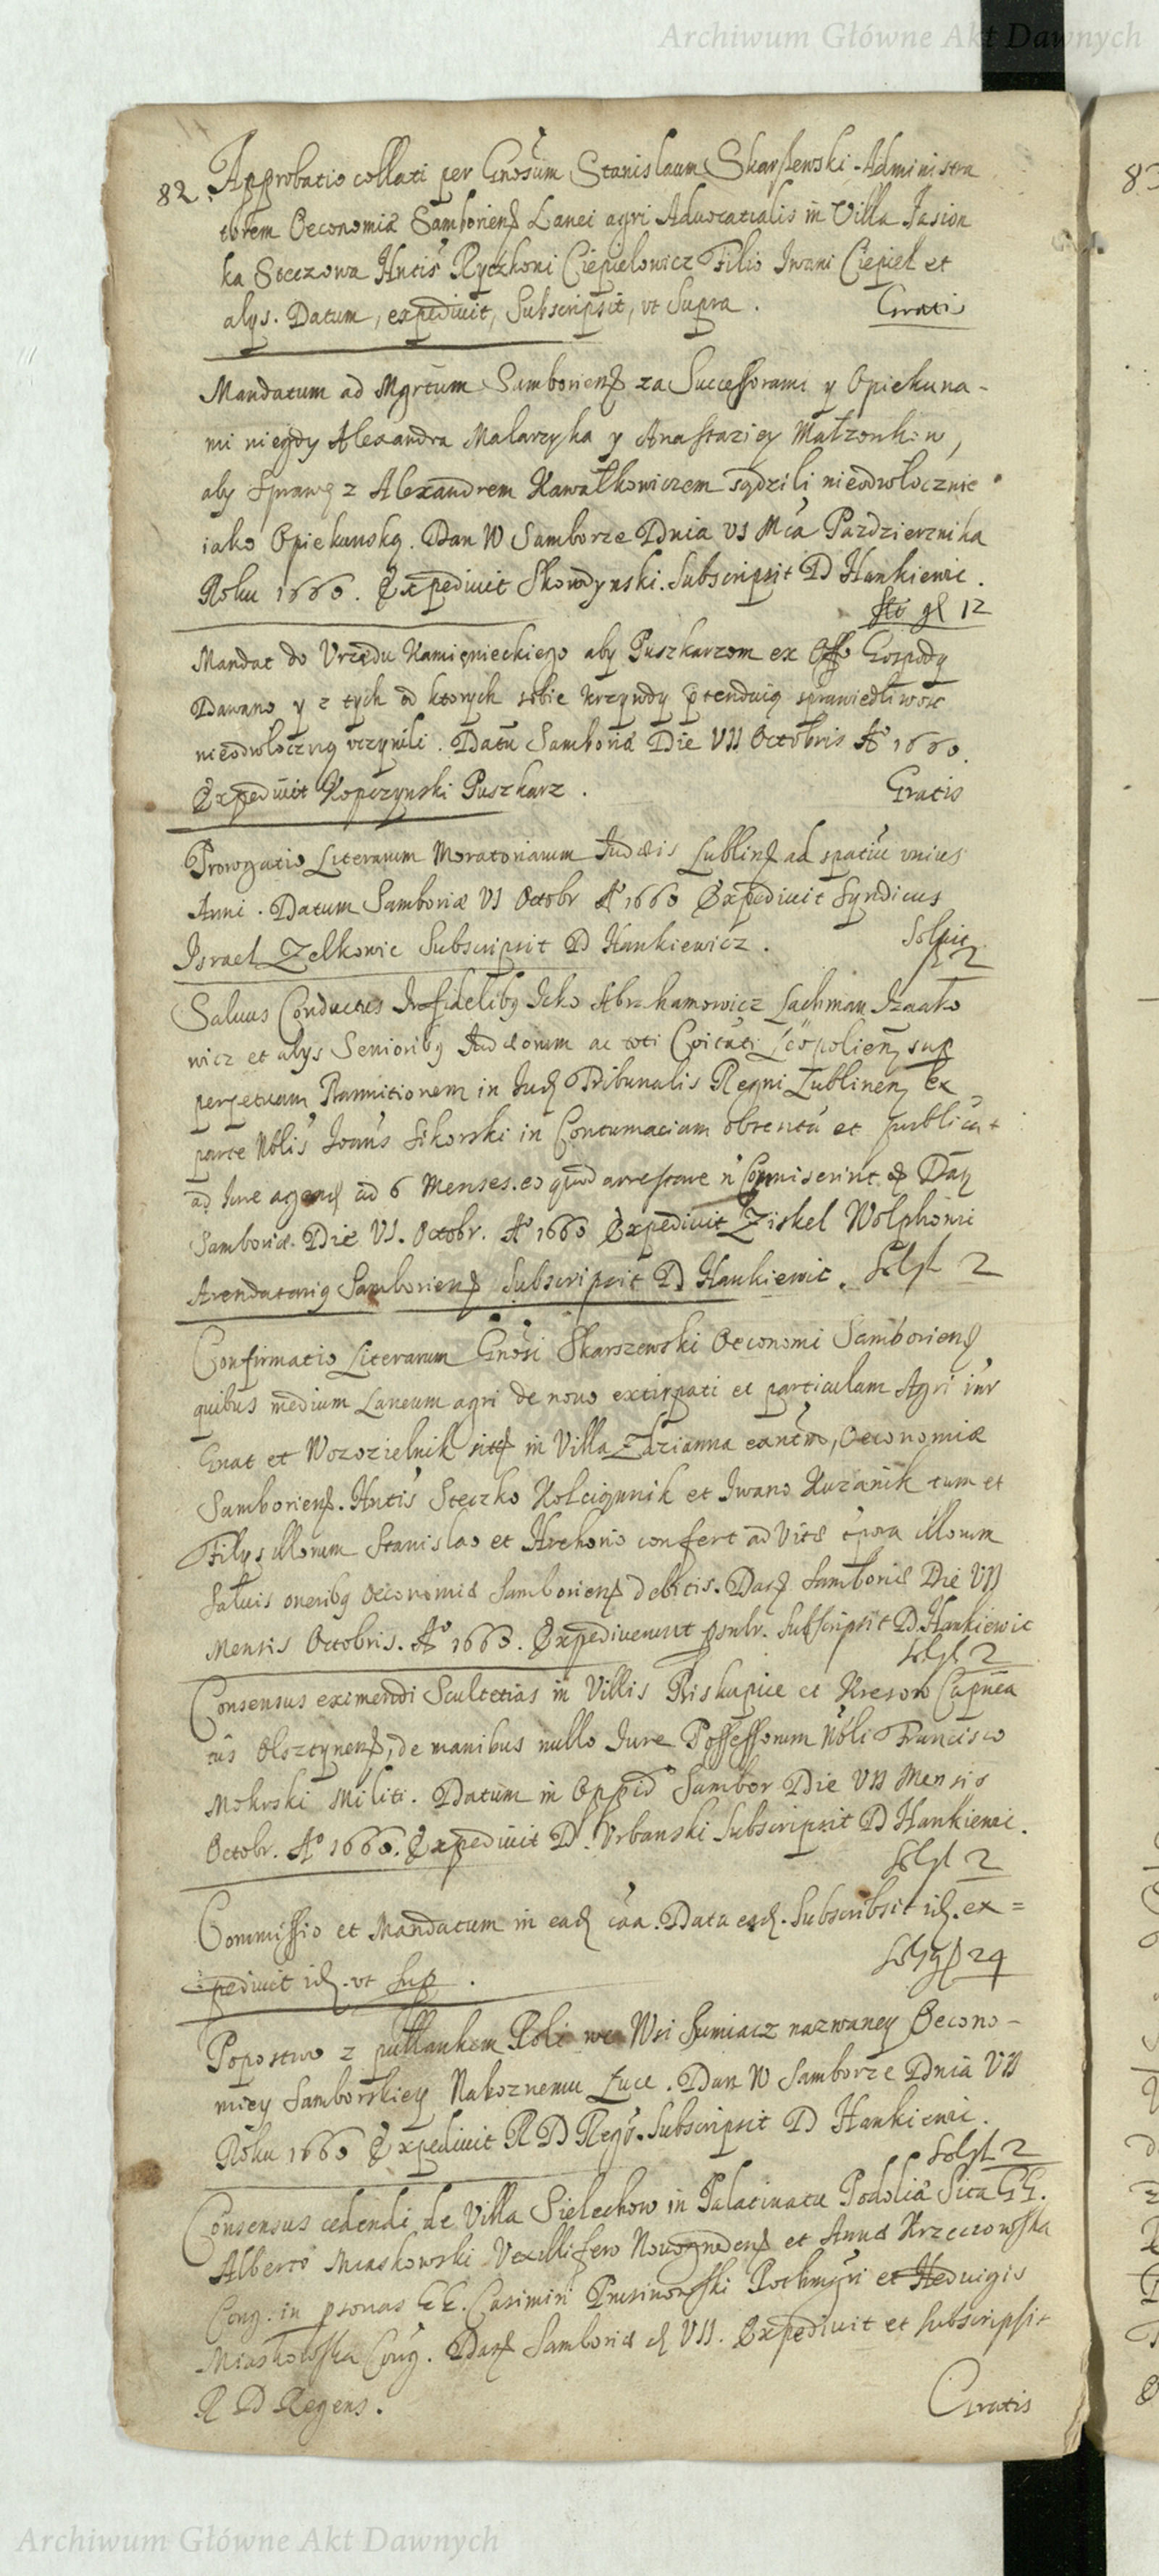 Archiwum Główne Akt Dawnych
82. Approbatio collati per Gnosum Stanislaum Skarszewski Administra
torem Oeconomiæ Samborien Lanei agri Aduocatialis in Villa Jasion
ka Steczowa Hntis Ryczkoni Ciepielowicz Filio Iwani Ciepiel et
alys. Datum, expediuit, Subscripsit, vt Supra. Gratis
Mandatum ad Mgrtum Samborien za Successorami y Opiekuna-
mi niegdy Alexandra Malarzyka y Anastaziey Małzonkow,
aby sprawę z Alexandrem Kawałkowiczem sądzili nieodwłocznie
iako Opiekunską. Dan W Samborze Dnia VI Mca Pazdziernika
Roku 1660. Expediuit Skowdynski. Subscripsit D Hankiewic.
gl 12
Mandat do Vrzędu Kamięnieckiego aby Puszkarzom ex Offo Gospody
Dawano y z tych od ktorych sobie krzywdy ptenduią sprawiedliwosc
nieodwłoczną vczynili. Datu Samboriæ Die VII Octobris Ao 1660.
Expediuit Kopczynski Puszkarz. Gratis
Prorogatio Literarum Moratoriarum Judæis Lublin ad spatiu vnius
Anni. Datum Samboriæ VI Octobr Ao 1660 Expediuit Syndicus
Israel Zelkowic Subscripsit D Hankiewicz. Soluit
2
Saluus Conductus Infidelibg Icko Abrahamowicz Lachman Izaako
wicz et alys Senioribg Judæorum ac toti Coitati Leopolien sup
perpetuam Bannitionem in Jud Tribunalis Regni Lublinen ex
parte Nōlis Joans Sikorski in Contumaciam obtenta et publicat
ad Iure agend ad 6 Menses. eo quod arrestare n Comiserint. & Dat
Samboriæ. Die VI. Octobr. Ao 1660 Expediuit Ziskel Wolphowi
Arendatorig Samborien Subscripsit D Hankiewic. Sol 2
Confirmatio Literarum Gnosi Skarszewski Oeconomi Samborien
quibus medium Laneum agri de nouo extirpati et particulam Agri intr
Gnat et Wozozielnik sitt in Villa Zdzianna Oeconomiæ
Samborien. Hntis Steczko Kolcigunik et Iwano Kuzanik tum et
Filys illorum Stanislao et Hrehorio confert ad Vitæ tpora illorum
Saluis oneribg Oeconomiæ Samborien debitis. Dat Samboriæ Die VII
Mensis Octobris. Ao 1660. Expediuerunt psntr. Subscripsit D. Hankiewic
2
Consensus eximendi Scultetias in Villis Biskupice et Kresow Capnea
tus Olsztynen, de manibus nullo Iure Possessorum Nōli Francisco
Mokrski Militi. Datum in Oppid Sambor Die VII Mensis
Octobr. Ao 1660. Expediuit D. Vrbanski Subscripsit D Hankiewi.
2
Commissio et Mandatum in ead caa. Data ead. Subscribsit id. ex=
24
pediuit id. vt sup.
Popostwo z pułłankem Roli we Wsi Sumiacz nazwaney Oecono-
miey Samborskiey Nakoznemu Łuce. Dan W Samborze Dnia VII
Roku 1660 Expediuit R D Regs. Subscripsit D Hankiewi.
2
Consensus cedendi de Villa Sielechow in Palatinatu Podoliæ Sita GG.
Alberto Miaskowski Vexillifero Nouogreden et Annæ Krzeczowska
Cong. in psonas GG. Casimiri Prusinowski Rothmgri et Heduigis
Miaskowska Cong. Dat Samboriæ d VII. Expediuit et Subscripsit
R D Regens. Gratis
Archiwum Główne Akt Dawnych